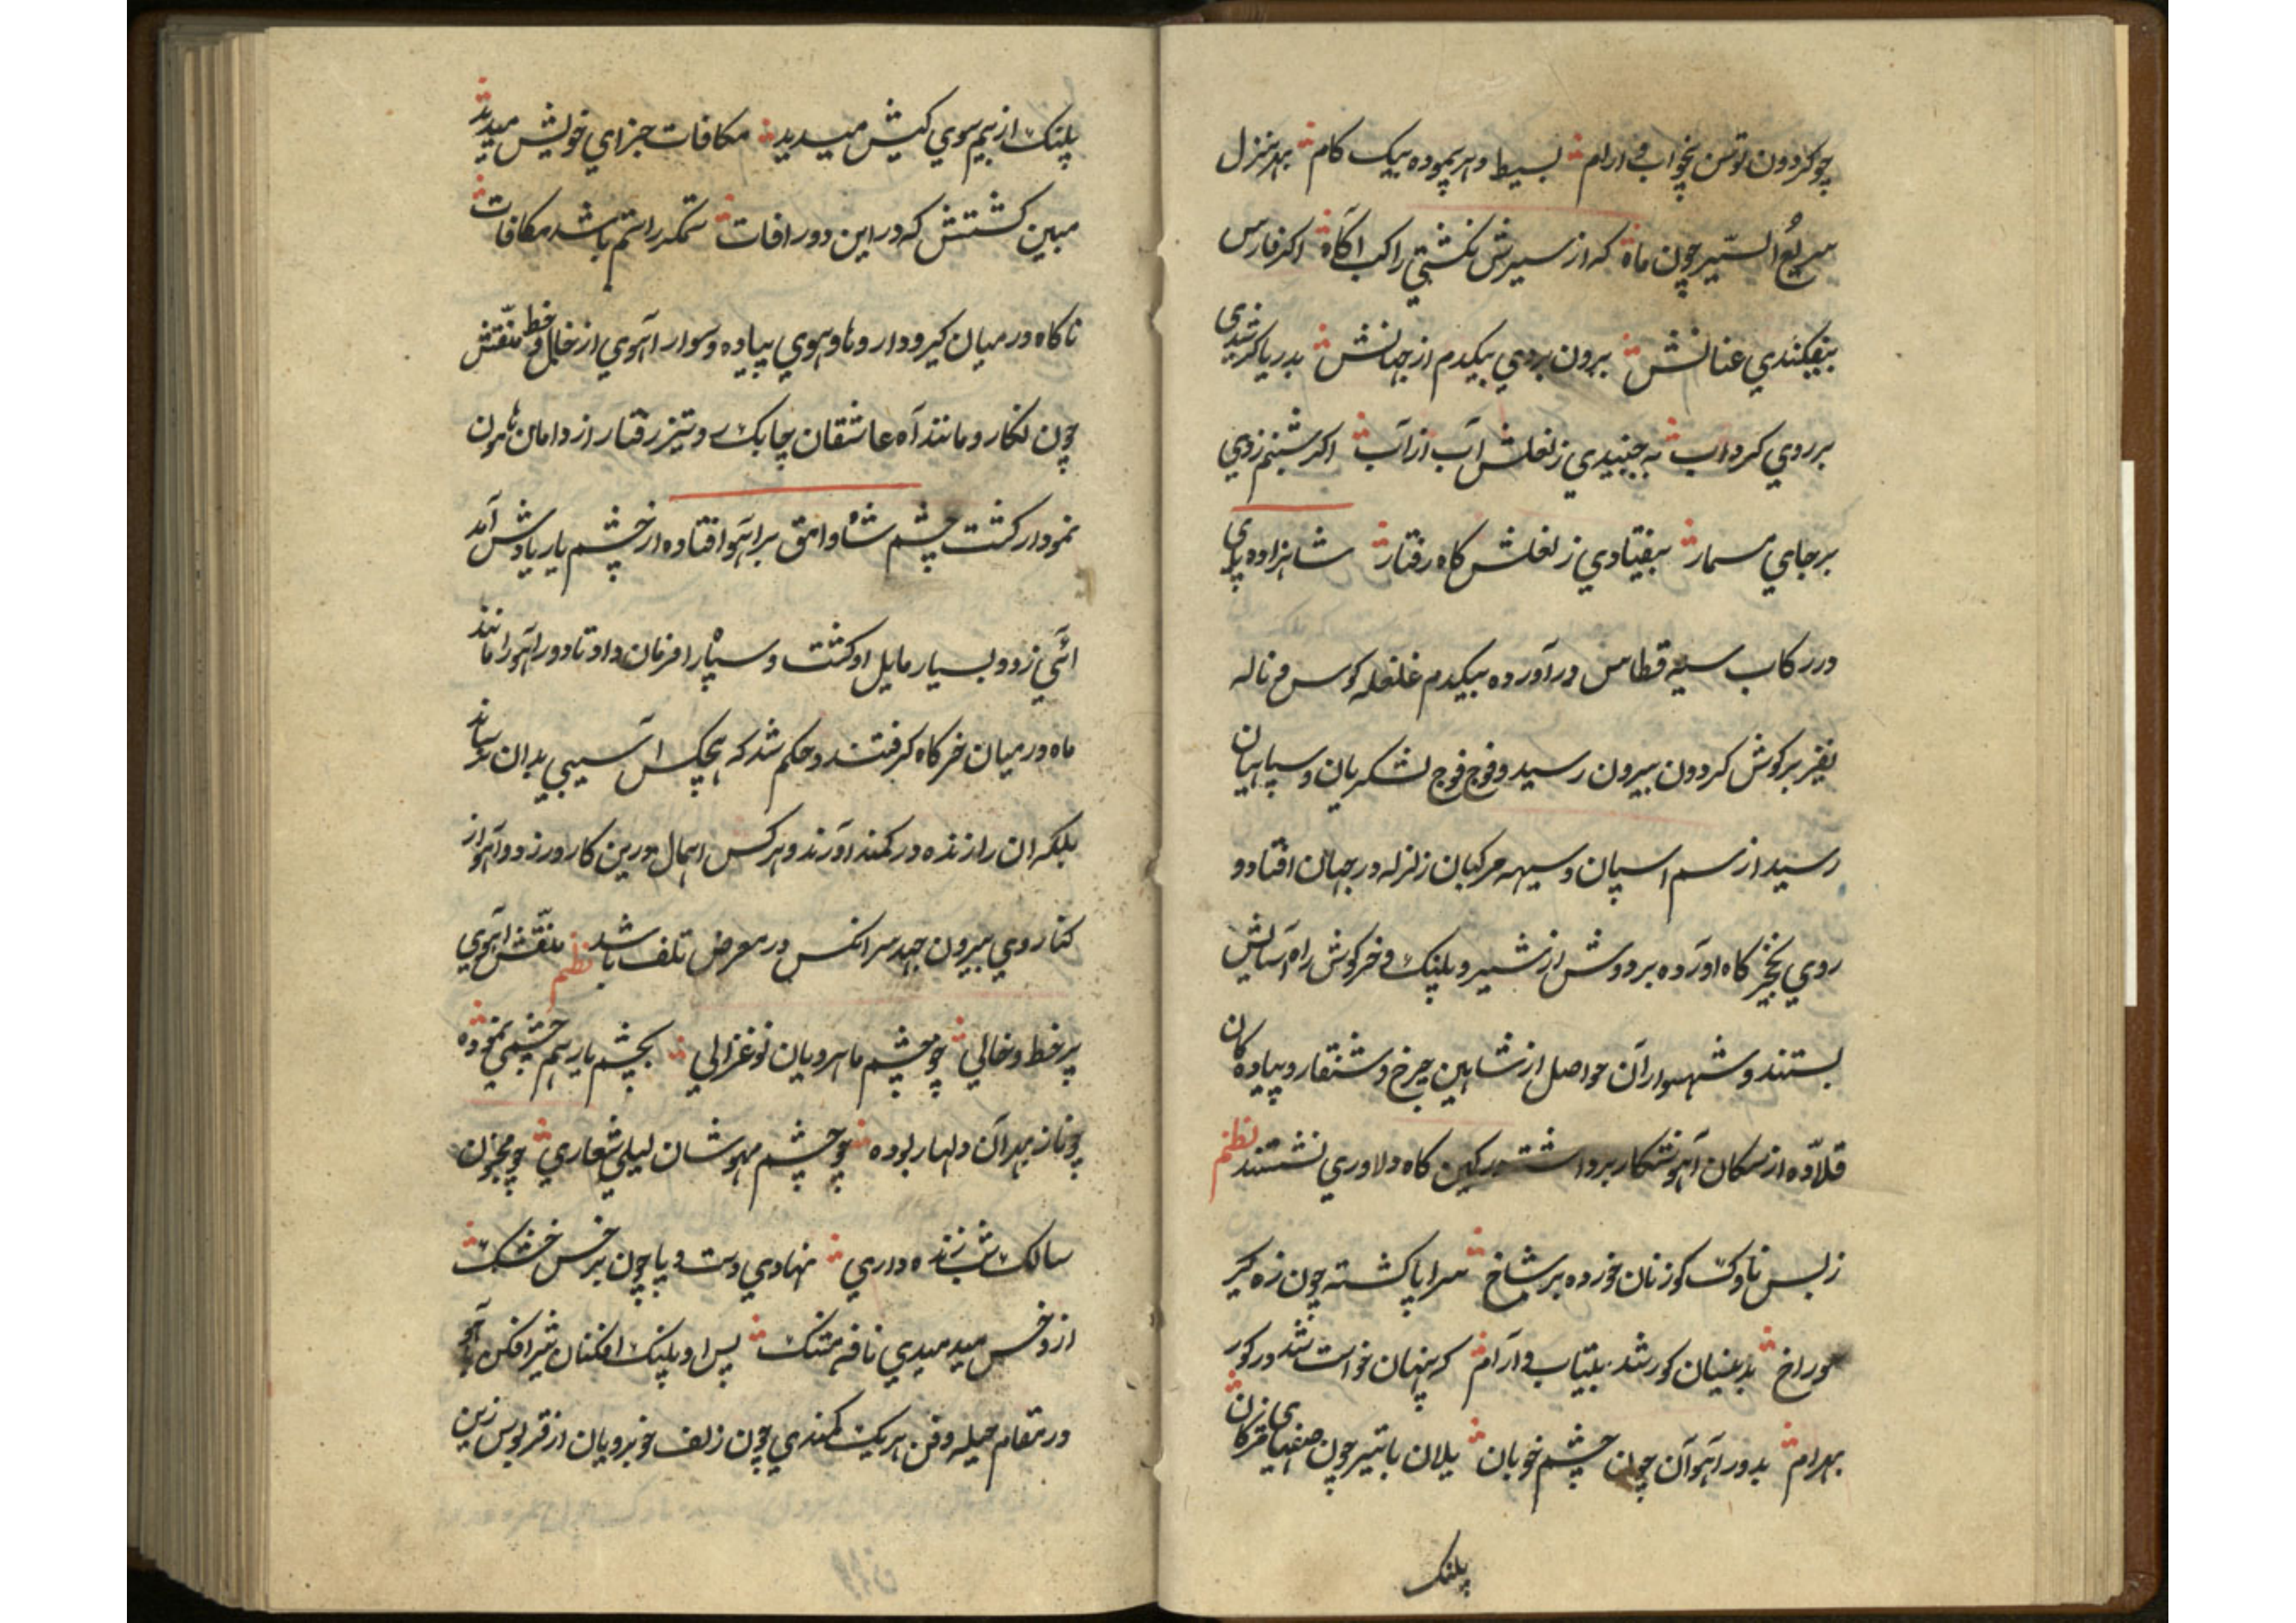 چو کردون توسن بیخواب و ارام بسیط دهر پیموده بیک کام بهر منزل
سریع السّیر چون ماه که از سیرش نکشتی راکب اکاه اکر فارس
بیفکندی عنانش برون بردی بیکدم از جهانش بدریا کر شدی
بر روی کرداب نه جنبیدی ز نعلش آب از آب اکر شبنم زدی
بر جای مسمار بیفتادی ز نعلش کاه رفتار شاهزاده پای
در رکاب سیه قطاس در آورده بیکدم غلغله کوس و ناله
نفیر بر کوش کردون بیرون رسید و فوج فوج لشکریان و سپاهیان
رسید از سم اسپان و سیهه مرکبان زلزله در جهان افتاد و
روی بنخجیر کاه اورده بر دوش از شیر و پلنک و خرکوش راه آسایش
بستند و شهسواران حواصل از شاهین چرخ و شنقار و پیاده کان
قلاّده از سکان آهو شکار برداشته در کمین کاه دلاوری نشستند نظم
ز بس ناوک کوزنان خورده بر شاخ سراپا کشته چون زه کیر
سوراخ بدینسان کور شد بیتاب و آرام که پنهان خواست شد در کور
بهرام بدور آهوان چون چشم خوبان یلان با تیر چون صفهای مژکان
پلنک
پلنک از بیم سوی کیش میدید مکافات جزای خویش میدید
مبین کشتش که در این دور افات ستمکر را ستم باشد مکافات
ناکاه در میان کیر و دار و های و هوی پیاده و سوار آهوی از خال و خط منقّش
چون نکار و مانند آه عاشقان چابک رو تیز رفتار از دامان هامون
نمودار کشت چشم شاه وامق بر اهو افتاده از چشم یار یادش آمد
آئی زد و بسیار مایل او کشت و سپاه را فرمان داد تا دور اهو را مانند
ماه در میان خرکاه کرفتند و حکم شد که هیچکس اسیبی بدان نرساند
بلکه ان را زنده در کمند اورند و هر کس اهمال درین کار ورزد و اهو از
کنار وی بیرون جهد سر انکس در معرض تلف باشد نظم منقّش اهوی
پر خط و خالی چو چشم ماهرویان نو غزالی بچشم یار هم چشمی نموده
چو ناز بهر آن دلها ربوده چو چشم مهوشان لیلی شعاری چو مجنون
سالک شب زنده داری نهادی دست و پا چون بر خس خشک
از و خس میدمیدی نافه مشک پس او پلنک افکنان شیر افکن
در مقام حیله و فن هر یک کمندی چون زلف خوبرویان از قربوس زین